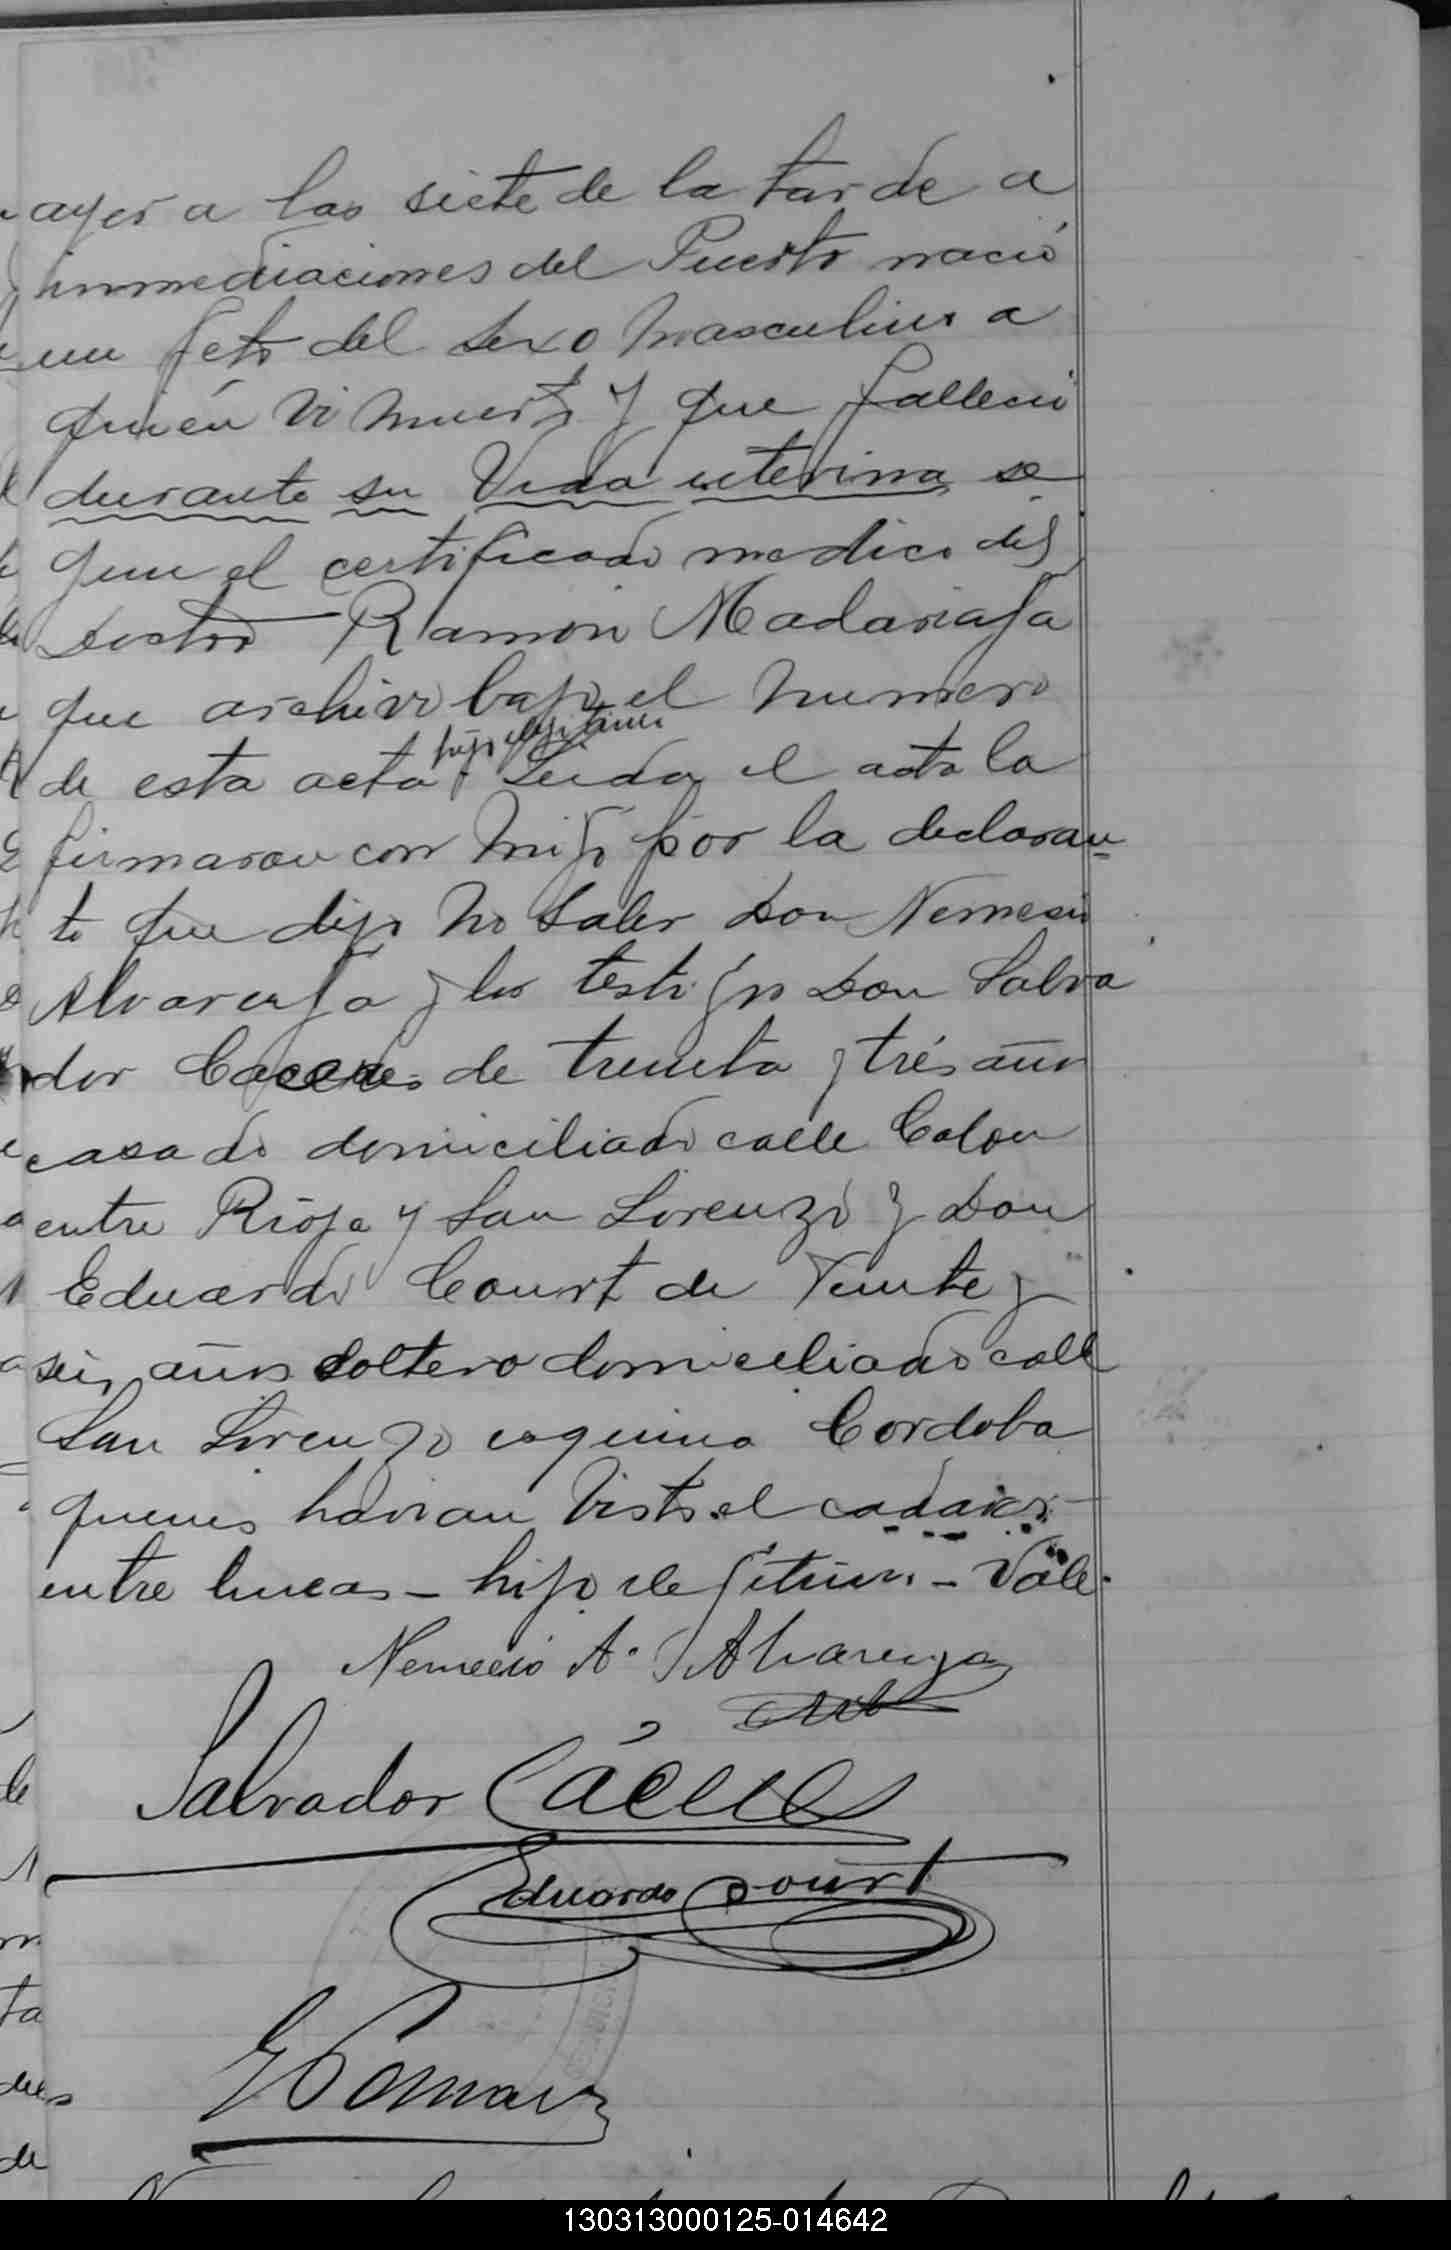 ayer a las siete de la tarde a
inmediaciones del Puerto nació
un feto del sexo masculino a
quién vi muerto y que falleció
durante su vida uterina se
gun el certificado medico del
Doctor Ramon Madariaga
que archivo bajo el numero
hijo ilegitimo
de esta acta. Leida el acta la
firmaron con migo por la declaran
te que dijo no saber Don Nemesio
Alvarenga y los testigos Don Salva
dor Caceres de treinta y trés años
casado domiciliado calle Colon
entre Rioja y San Lorenzo y Don
Eduardo Court de Veinte y
seis años soltero domiciliado calle
San Lorenzo esquina Cordoba
quenes havian visto el cadaver
entre lineas - hijo ilegitimo - Vale.
Nemecio A. Alvarenga
Salvador Cáceres
Eduardo Court
130313000125-014642